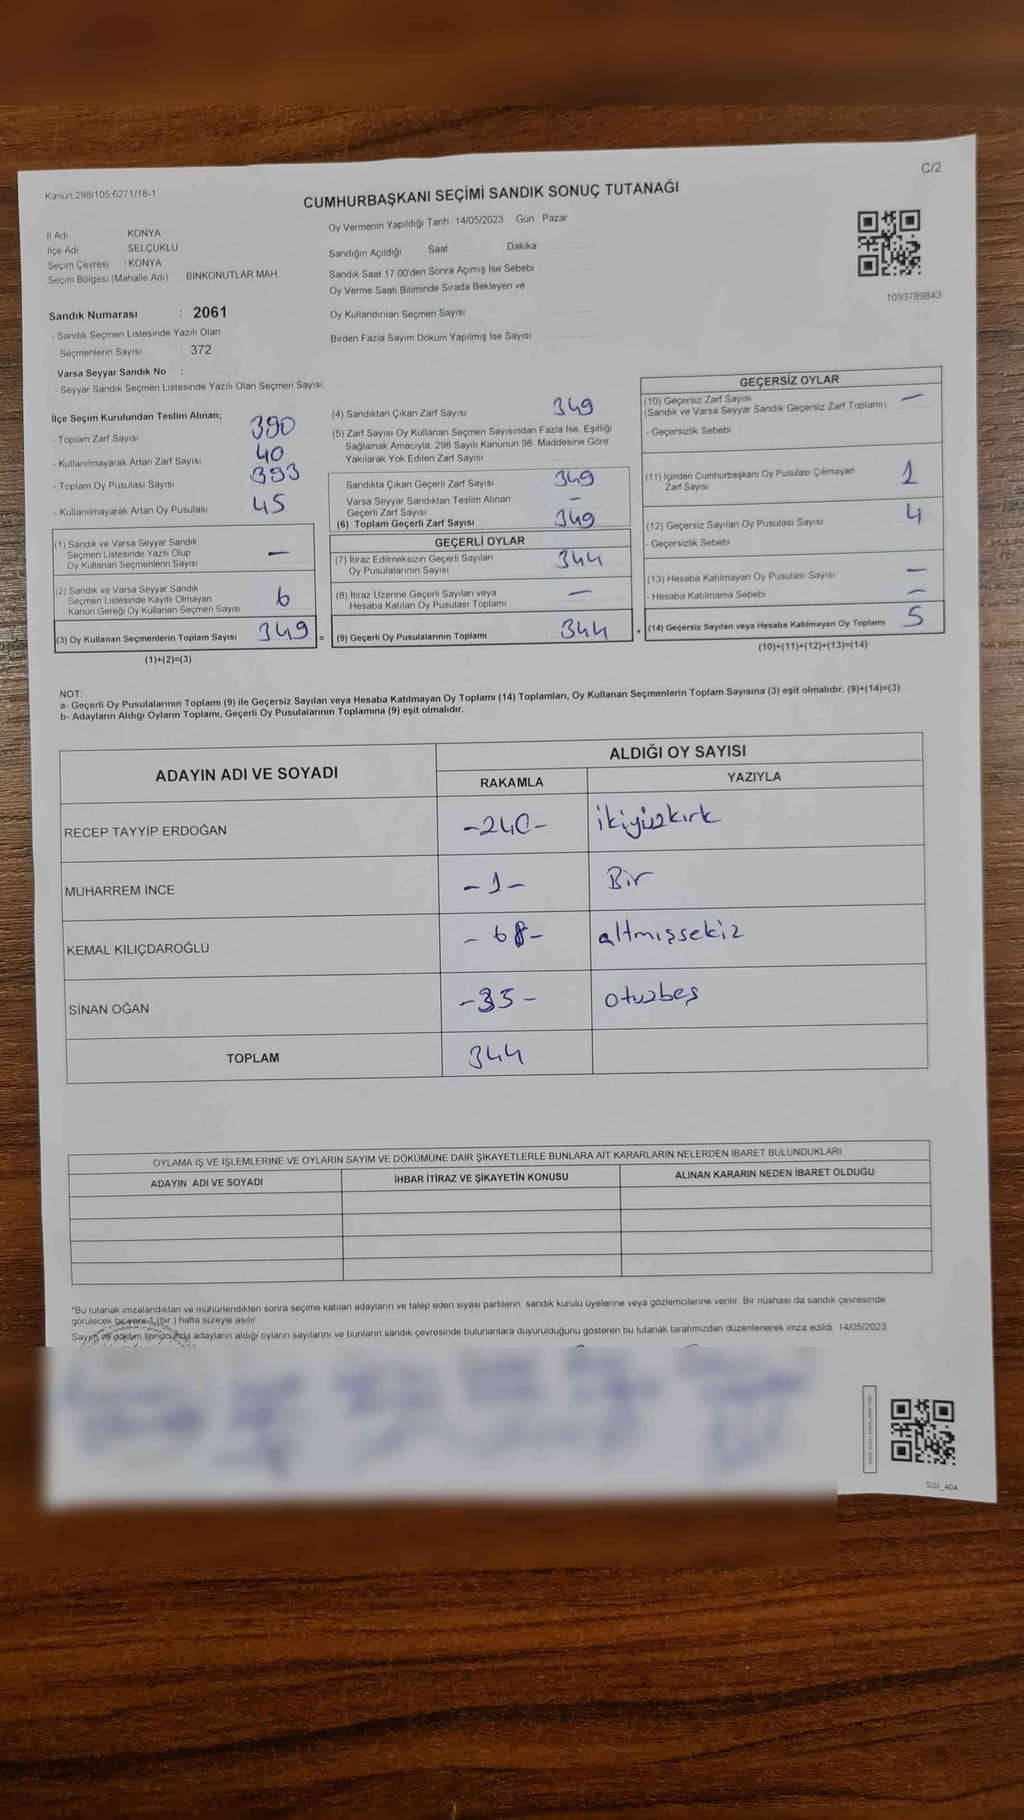 Kanun.298/105;6271/18-1
C/2
CUMHURBAŞKANI SEÇİMİ SANDIK SONUÇ TUTANAĞI
İl Adı KONYA
İlçe Adı SELÇUKLU
Seçim Çevresi : KONYA
Seçim Bölgesi (Mahalle Adı) BİNKONUTLAR MAH.
Oy Vermenin Yapıldığı Tarih 14/05/2023 Gün : Pazar
Sandığın Açıldığı Saat Dakika
Sandık Saat 17.00'den Sonra Açımış İse Sebebi
Oy Verme Saati Bitiminde Sırada Bekleyen ve
Oy Kullandırılan Seçmen Sayısı
Birden Fazla Sayım Döküm Yapılmış İse Sayısı
1093789843
Sandık Numarası : 2061
- Sandık Seçmen Listesinde Yazılı Olan
Seçmenlerin Sayısı : 372
Varsa Seyyar Sandık No :
- Seyyar Sandık Seçmen Listesinde Yazılı Olan Seçmen Sayısı
İlçe Seçim Kurulundan Teslim Alınan;
- Toplam Zarf Sayısı 390
- Kullanılmayarak Artan Zarf Sayısı 40
- Toplam Oy Pusulası Sayısı 393
- Kullanılmayarak Artan Oy Pusulası 45
(1) Sandık ve Varsa Seyyar Sandık
Seçmen Listesinde Yazılı Olup
Oy Kullanan Seçmenlerin Sayısı —
(2) Sandık ve Varsa Seyyar Sandık
Seçmen Listesinde Kayıtlı Olmayan
Kanun Gereği Oy Kullanan Seçmen Sayısı 6
(3) Oy Kullanan Seçmenlerin Toplam Sayısı 349 =
(1)+(2)=(3)
(4) Sandıktan Çıkan Zarf Sayısı 349
(5) Zarf Sayısı Oy Kullanan Seçmen Sayısından Fazla İse, Eşitliği
Sağlamak Amacıyla; 298 Sayılı Kanunun 98. Maddesine Göre
Yakılarak Yok Edilen Zarf Sayısı
Sandıkta Çıkan Geçerli Zarf Sayısı 349
Varsa Seyyar Sandıktan Teslim Alınan
Geçerli Zarf Sayısı —
(6) Toplam Geçerli Zarf Sayısı 349
GEÇERLİ OYLAR
(7) İtiraz Edilmeksizin Geçerli Sayılan
Oy Pusulalarının Sayısı 344
(8) İtiraz Üzerine Geçerli Sayılan veya
Hesaba Katılan Oy Pusulası Toplamı —
(9) Geçerli Oy Pusulalarının Toplamı 344 +
GEÇERSİZ OYLAR
(10) Geçersiz Zarf Sayısı —
(Sandık ve Varsa Seyyar Sandık Geçersiz Zarf Toplamı)
- Geçersizlik Sebebi
(11) İçinden Cumhurbaşkanı Oy Pusulası Çıkmayan
Zarf Sayısı 1
(12) Geçersiz Sayılan Oy Pusulası Sayısı 4
- Geçersizlik Sebebi
(13) Hesaba Katılmayan Oy Pusulası Sayısı —
- Hesaba Katılmama Sebebi —
(14) Geçersiz Sayılan veya Hesaba Katılmayan Oy Toplamı 5
(10)+(11)+(12)+(13)=(14)
NOT:
a- Geçerli Oy Pusulalarının Toplamı (9) ile Geçersiz Sayılan veya Hesaba Katılmayan Oy Toplamı (14) Toplamları, Oy Kullanan Seçmenlerin Toplam Sayısına (3) eşit olmalıdır. (9)+(14)=(3)
b- Adayların Aldığı Oyların Toplamı, Geçerli Oy Pusulalarının Toplamına (9) eşit olmalıdır.
ADAYIN ADI VE SOYADI
ALDIĞI OY SAYISI
RAKAMLA YAZIYLA
RECEP TAYYİP ERDOĞAN -240- ikiyüzkırk
MUHARREM İNCE -1- Bir
KEMAL KILIÇDAROĞLU -68- altmışsekiz
SİNAN OĞAN -35- otuzbeş
TOPLAM 344
OYLAMA İŞ VE İŞLEMLERİNE VE OYLARIN SAYIM VE DÖKÜMÜNE DAİR ŞİKAYETLERLE BUNLARA AİT KARARLARIN NELERDEN İBARET BULUNDUKLARI
ADAYIN ADI VE SOYADI İHBAR İTİRAZ VE ŞİKAYETİN KONUSU ALINAN KARARIN NEDEN İBARET OLDUĞU
*Bu tutanak imzalandıktan ve mühürlendikten sonra seçime katılan adayların ve talep eden siyasi partilerin sandık kurulu üyelerine veya gözlemcilerine verilir. Bir nüshası da sandık çevresinde
görülecek bir yere 1 (bir ) hafta süreyle asılır.
Sayım ve döküm sonucunda adayların aldığı oyların sayılarını ve bunların sandık çevresinde bulunanlara duyurulduğunu gösteren bu tutanak tarafımızdan düzenlenerek imza edildi. 14/05/2023
SSI_404